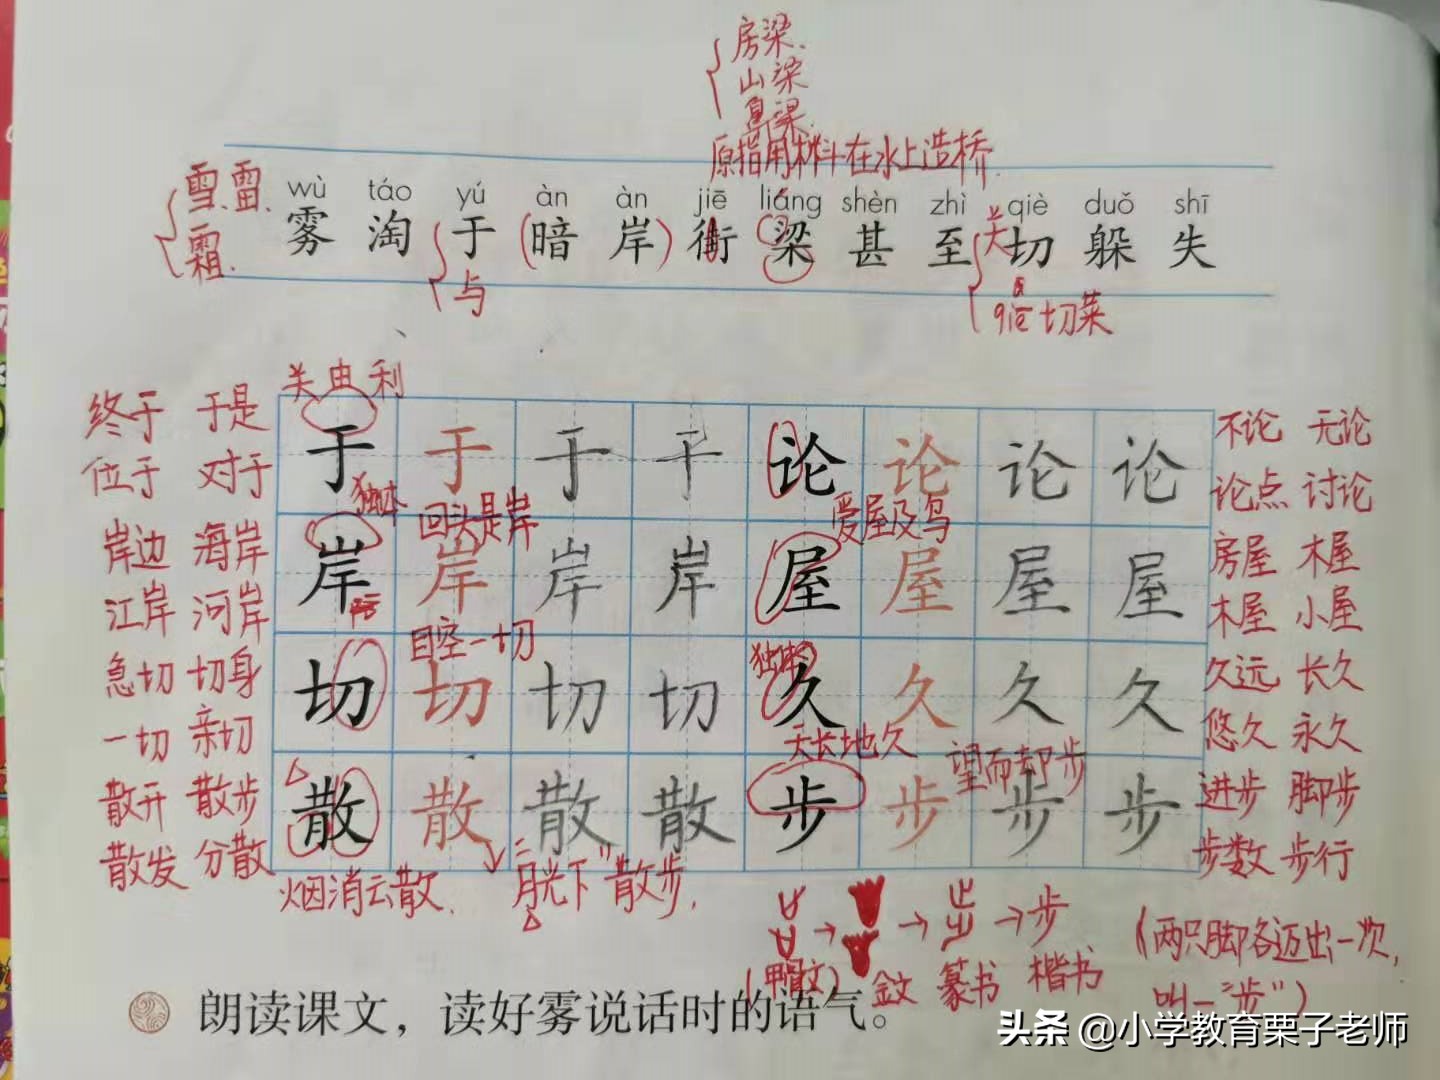 房梁.
山梁
鱼梁.
原指用木料在水上造桥.
雪.雷.
霜.
wù táo yú àn àn jiē liáng shèn zhì qiè duǒ shī
雾 淘 于 (暗 岸) 街 梁 甚 至 切 躲 失
与
关
qiē 切菜
关 由 利
终于 于是
位于 对于
岸边 海岸
江岸 河岸
急切 切身
一切 亲切
散开 散步
散发 分散
于 于 于 于 论 论 论 论
独体 回头是岸 爱屋及乌
岸 岸 岸 岸 屋 屋 屋 屋
目空一切 独体
切 切 切 切 久 久 久 久
天长地久 望而却步
散 散 散 散 步 步 步 步
烟消云散. "月光下"散步.
不论 无论
论点 讨论
房屋 木屋
木屋 小屋
久远 长久
悠久 永久
进步 脚步
步数 步行
→ → → 步
(甲骨文) 金文 篆书 楷书
(两只脚各迈出一次,
叫一"步")
朗读课文，读好雾说话时的语气。
头条 @小学教育栗子老师